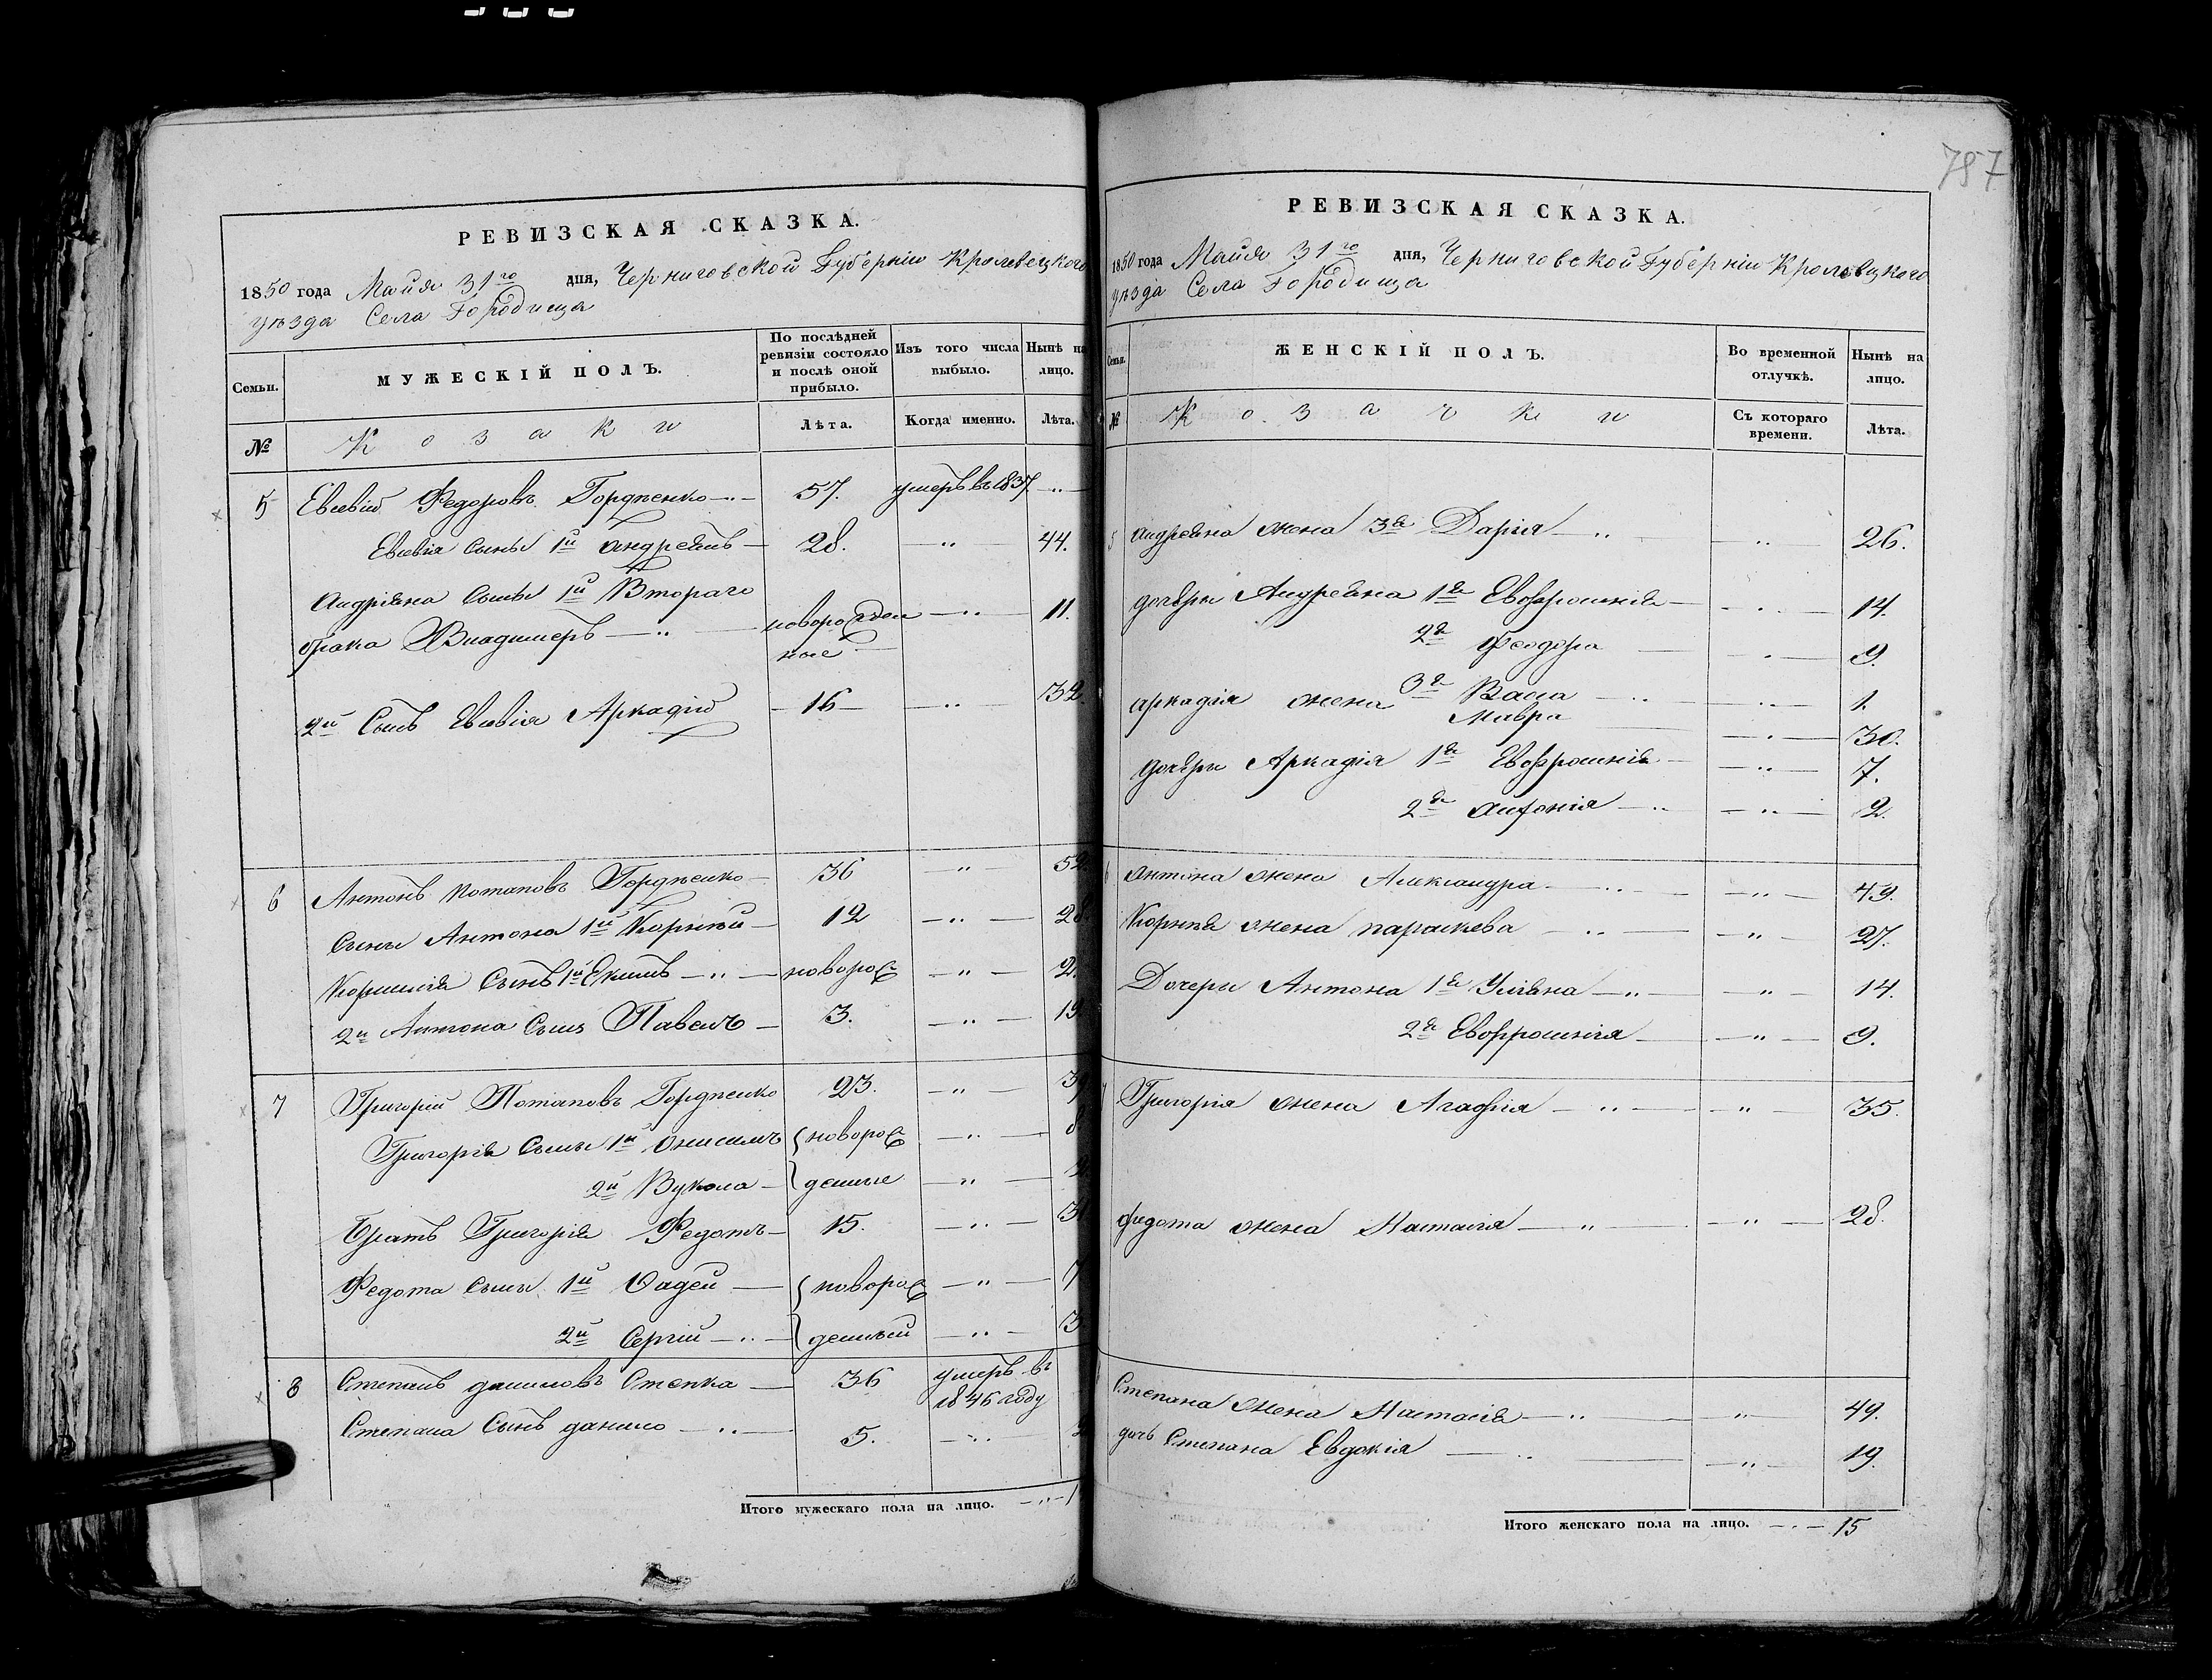 787
РЕВИЗСКАЯ СКАЗКА.
1850 года Майя 31го дня, Черниговской Губерніи Кролевецкого
уѣзда Села Городища
Семьи.
МУЖЕСКІЙ ПОЛЪ.
По послѣдней ревизіи состояло и послѣ оной прибыло.
Изъ того числа выбыло.
Нынѣ на лицо.
№
Козаки
Лѣта.
Когда именно.
Лѣта.
5 Евсевій Федоровъ Гордѣенко 57. умеръ въ 1837.
Евсевія сыны 1й Андреянъ 28. 44.
Андріяна сынъ 1й Втораго
брака Владимеръ новорожден 11.
ные
2й Сынъ Евсевія Аркадій 16 32.
6 Антонъ Потаповъ Гордѣенко 36 52
Сыны Антона 1й Корнѣй 12 28
Сынъ 1й новорож 2.
2й Антона Сынъ Павелъ 3. 19
7 Григорій Потаповъ Гордѣенко 23. 39
Григорія Сыны 1й Онисимъ новорож 8
2й Вукола денные
Братъ Григорія Федотъ 15. 31
Федота Сыны 1й Фадей новорож 7
2й Сергій денный 3
8 Степанъ Даниловъ Степка 36 умеръ въ
1846 году
Степана Сынъ Данило 5.
Итого мужескаго пола на лицо. 1
РЕВИЗСКАЯ СКАЗКА.
1850 года Майя 31го дня, Черниговской Губерніи Кролевецкого
уѣзда Села Городища
Семьи.
ЖЕНСКІЙ ПОЛЪ.
Во временной отлучкѣ.
Нынѣ на лицо.
№
Козачки
Съ котораго времени.
Лѣта.
5 Андреяна жена 3я Дарія 26.
дочери Андреяна 1я Евфросинія 14.
2я Феодора 9.
3я Васса 1.
Аркадія жена Мавра 30.
дочери Аркадія 1я Евфросинія 7.
2я 2.
6 Антона жена Александра 49.
Корнѣя жена Параскева 27.
Дочери Антона 1я Уліяна 14.
2я Евфросинія 9.
7 Григорія жена Агафія 35.
Федота жена Настасія 28.
Степана жена Настасія 49.
дочь Степана Евдокія 19.
Итого женскаго пола на лицо. 15